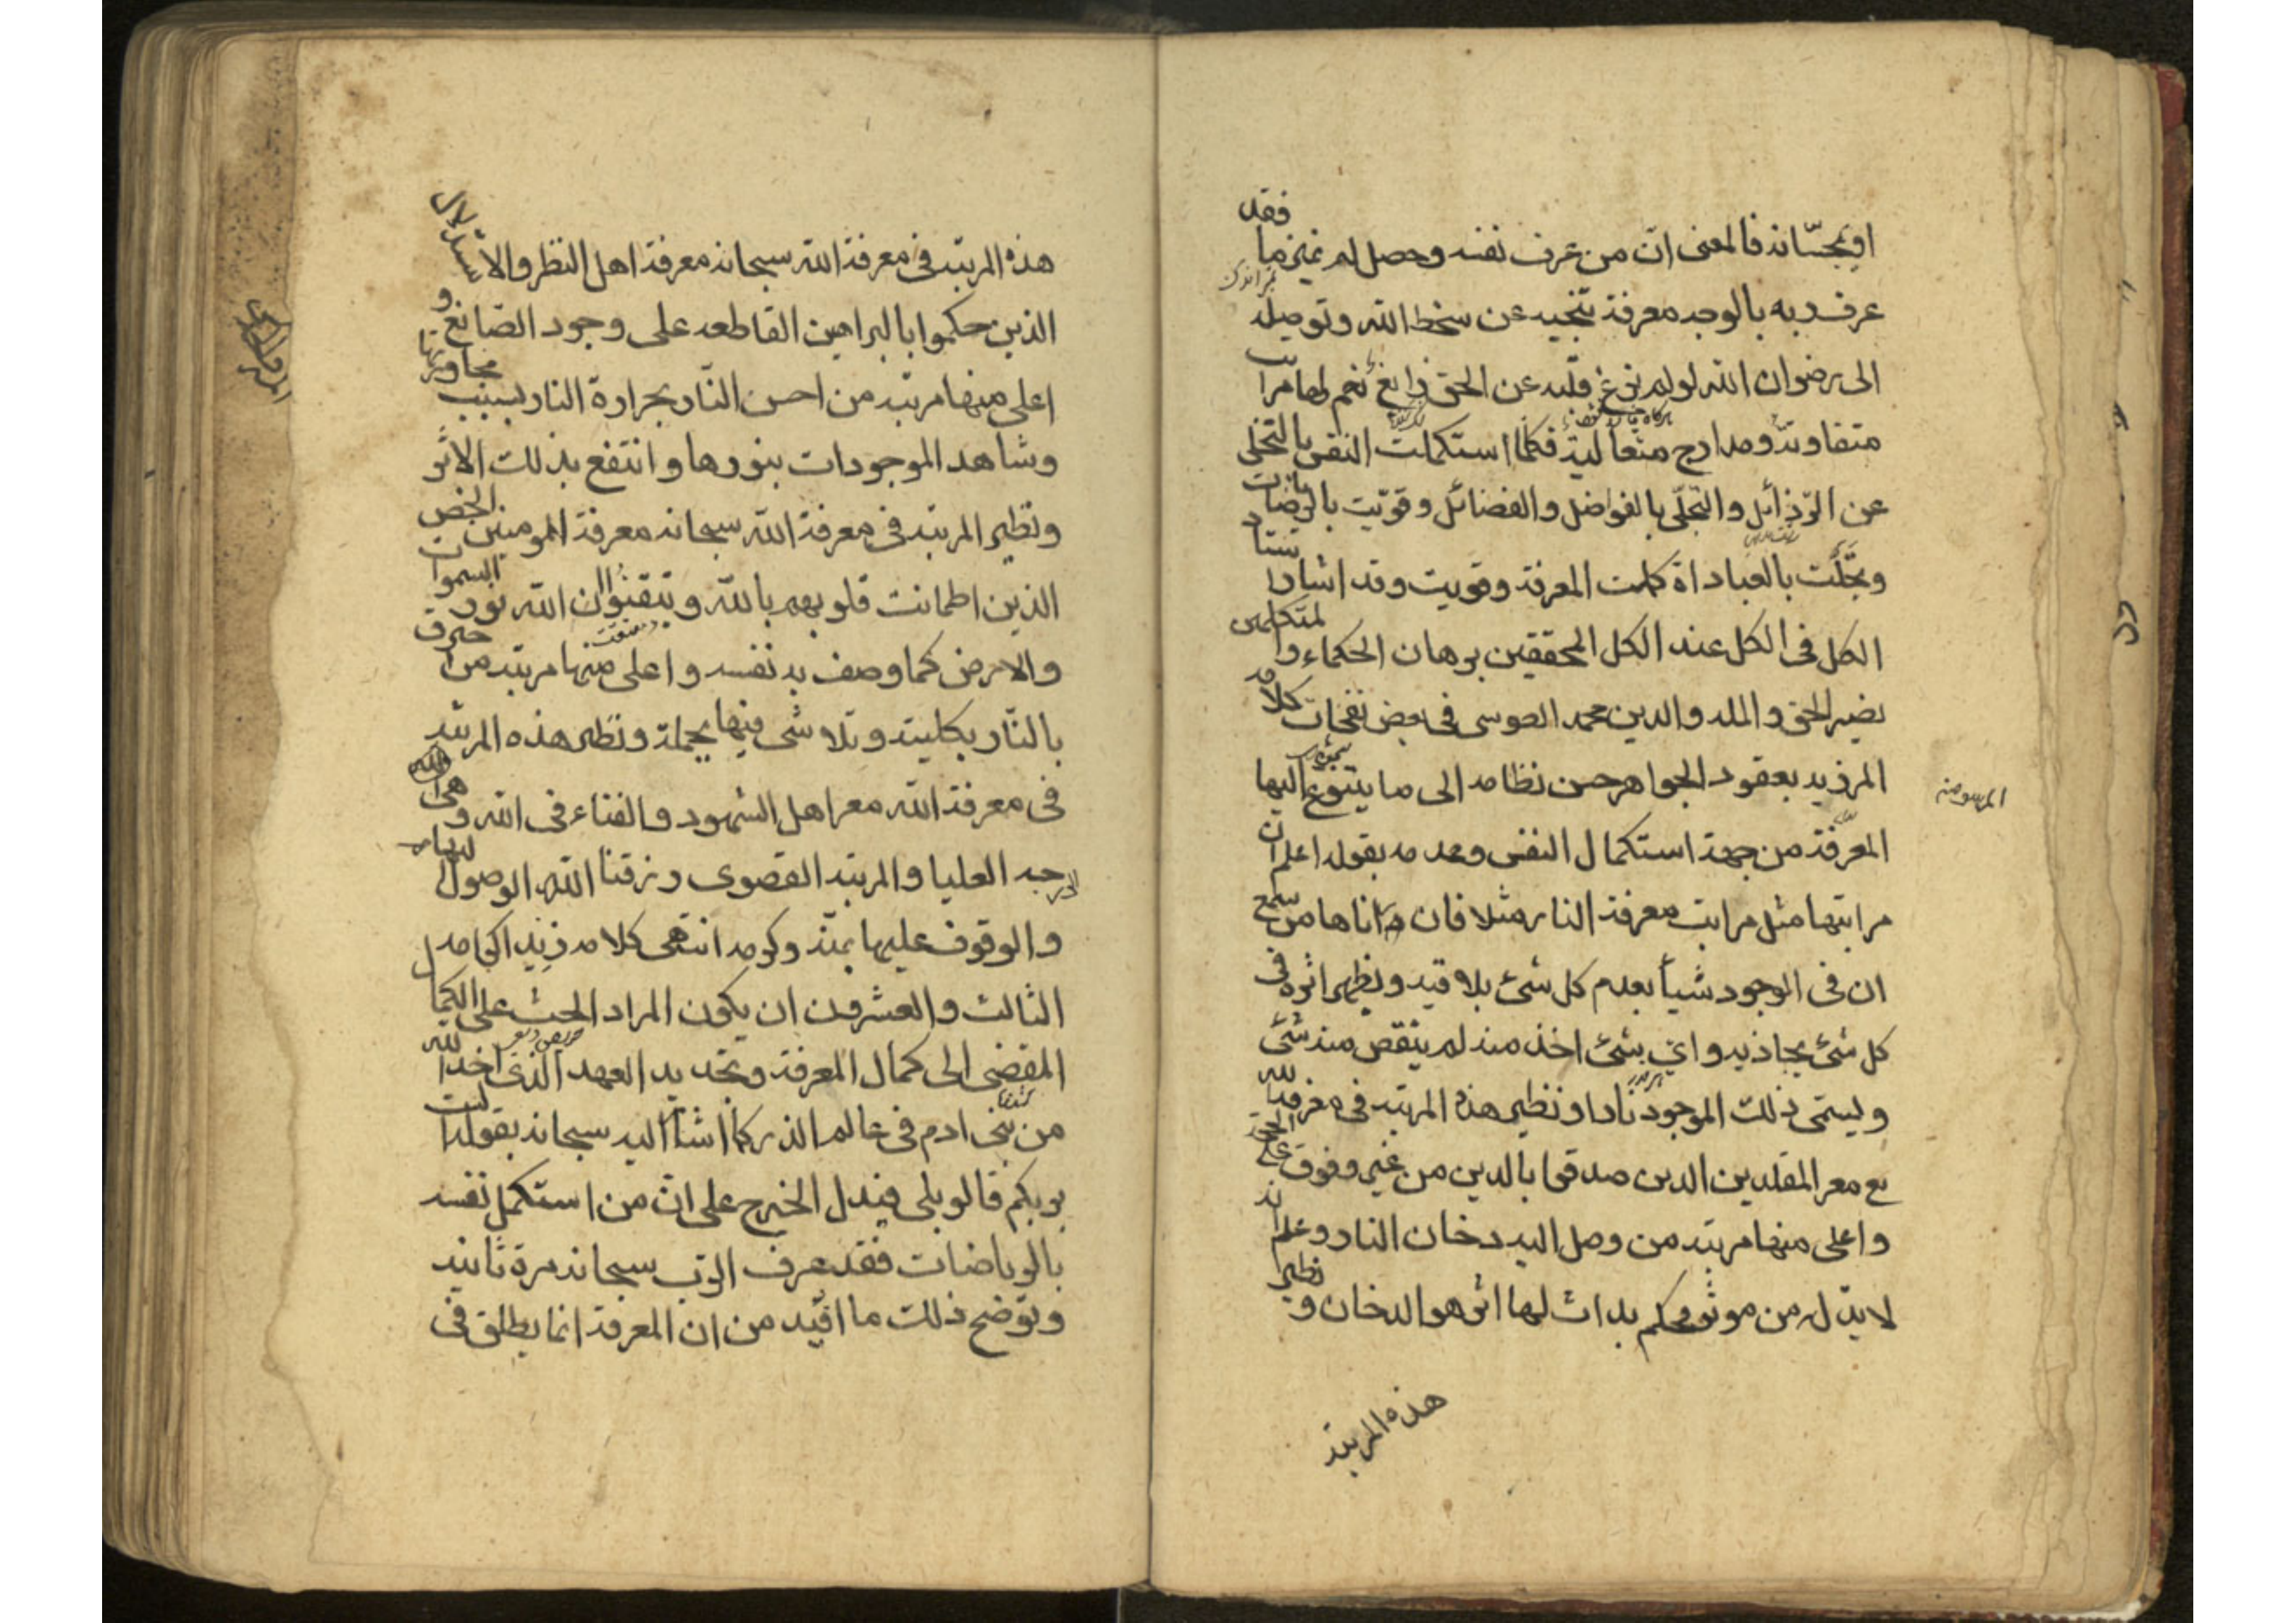 او بمحسّاته فالمعنى انّ من عرف نفسه وحصل له تميز ما فقد
عرف ربه بالوجه معرفة تنجيه عن سخط الله وتوصله
الى رضوان الله لو لم يزغ قلبه عن الحق زايغ نعم لها مراتب
متفاوتة ومدارج متعالية فكلما استكملت النفس بالتخلى
عن الرّذائل والتحلّى بالفواضل والفضائل وقويت بالرياضات
وتجلّت بالعبادات كملت المعرفة وقويت وقد اشار استاد
الكل فى الكل عند الكل المحققين برهان الحكماء والمتكلمين
نصير الحق والملة والدين محمد الطوسى فى بعض نفحات كلامه
المزيد بعقود الجواهر حسن نظامه الى ما يتنوع اليها
المرسومة
المعرفة من جهة استكمال النفس وعدمه بقوله اعلم ان
مراتبها مثل مراتب معرفة النار مثلا فان ادناها من سمع
ان فى الوجود شيأ يعدم كل شئ يلاقيه ويظهر اثره فى
كل شئ يحاذيه واى شئ اخذ منه لم ينقص منه شئ
ويسمى ذلك الموجود نارا ونظير هذه المرتبة فى معرفة الله
تع معرفة المقلدين الذين صدقوا بالدين من غير وقوف على الحجة
واعلى منها مرتبة من وصل اليه دخان النار وعلم انه
لا بد له من موثر فحكم بذات لها اثر هو الدخان ونظير
هذه المرتبة
هذه المرتبة فى معرفة الله سبحانه معرفة اهل النظر والاستدلال
الذين حكموا بالبراهين القاطعه على وجود الصّانع و
اعلى منها مرتبة من احسن النّار بحرارة النار بسبب مجاورتها
وشاهد الموجودات بنورها وانتفع بذلك الاثر
ونظير المرتبة فى معرفة الله سبحانه معرفة المومنين الخلص
الذين اطمانت قلوبهم بالله وتيقنوا ان الله نور السموات
والارض كما وصف به نفسه واعلى منها مرتبة من احترق
بالنّار بكليته وتلاشى فيها بجملة ونظير هذه المرتبة
فى معرفة الله معرفة اهل الشهود والفناء فى الله وهى
الدرجة العليا والمرتبة القصوى رزقنا الله الوصول اليها
والوقوف عليها بمنّه وكرمه انتهى كلامه زيد اكرامه
الثالث والعشرون ان يكون المراد الحث على الكمال
المفضى الى كمال المعرفة وتجديد العهد الذى اخذ الله
من بنى ادم فى عالم الذر كما اشار اليه سبحانه بقوله الست
بربكم قالو بلى فيدل الخبر على ان من استكمل نفسه
بالرياضات فقد عرف الرّب سبحانه مرة ثانية
وتوضح ذلك ما افيد من ان المعرفة انما يطلق فى